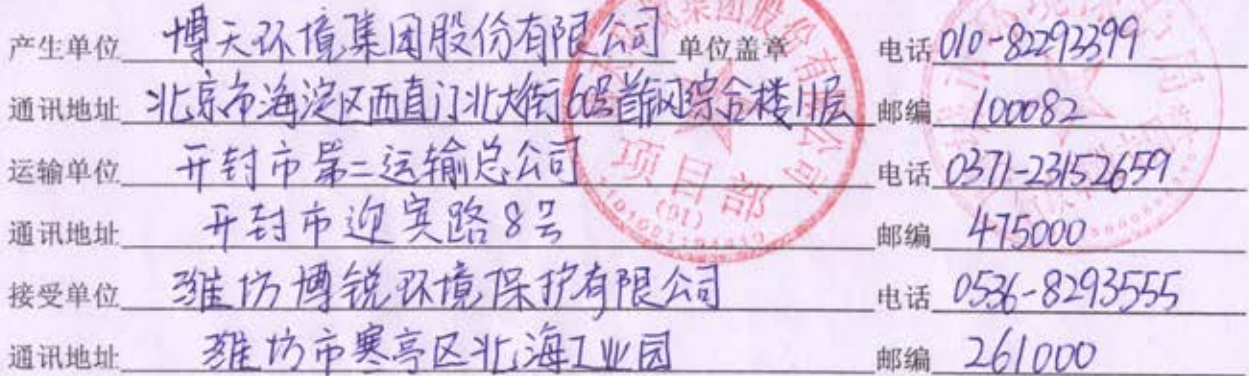 产生单位 博天环境集团股份有限公司 单位盖章 电话 010-82292399
通讯地址 北京市海淀区西直门北大街60号首钢综合楼11层 邮编 100082
运输单位 开封市第二运输总公司 电话 0371-23152659
通讯地址 开封市迎宾路8号 邮编 475000
接受单位 潍坊博锐环境保护有限公司 电话 0536-8293555
通讯地址 潍坊市寒亭区北海工业园 邮编 261000
集团股份有限公司
项目部
(01)